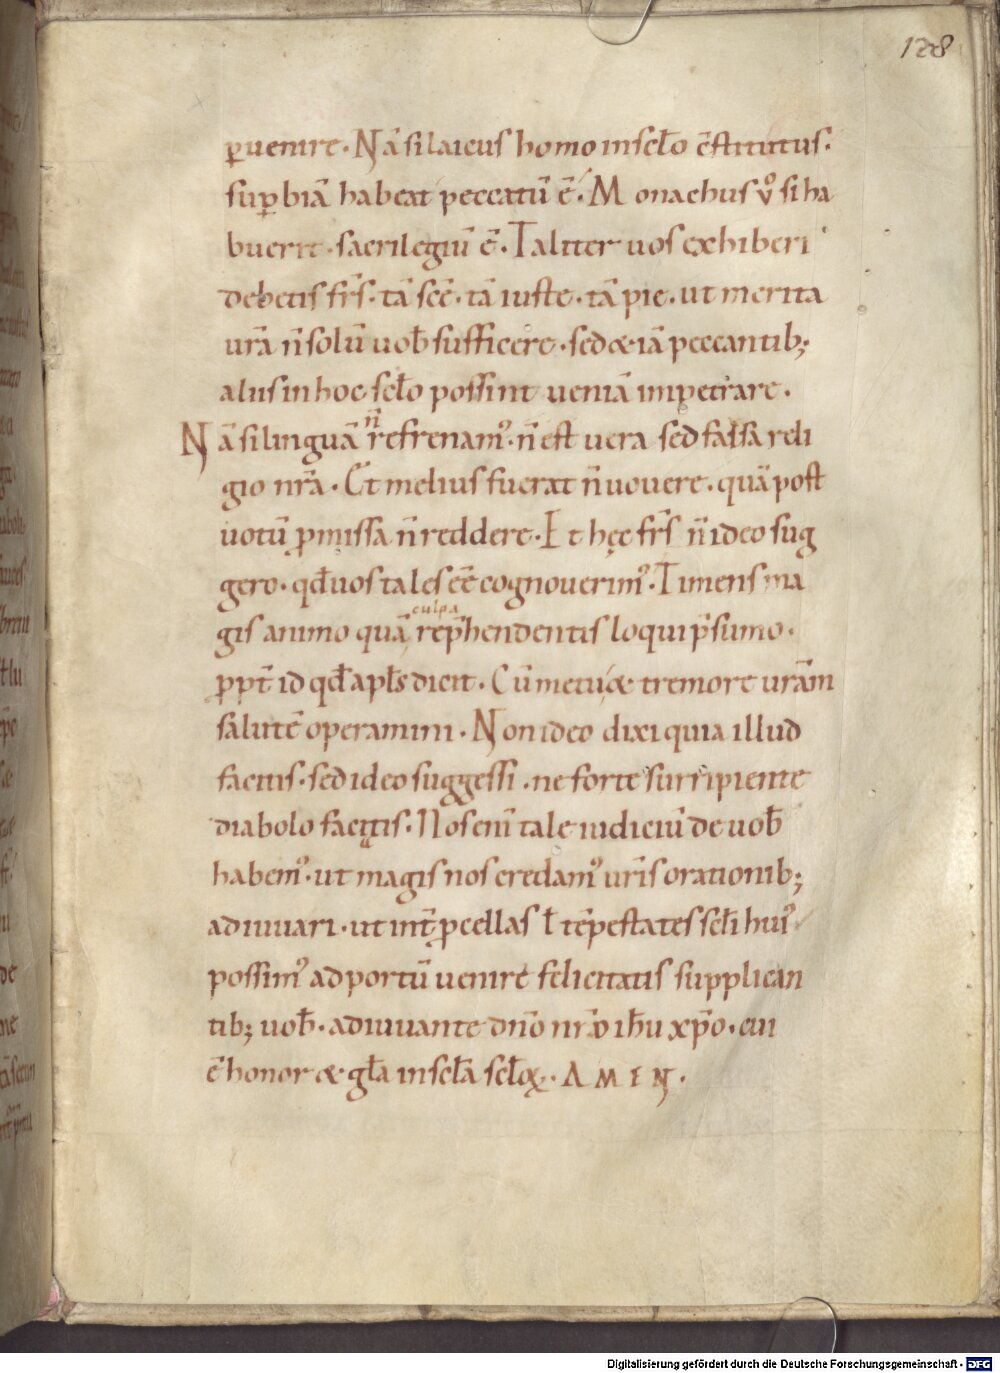 128
ꝑuenire. Nā si laicus homo in sc̄lo c̄stitutus.
suꝑbiā habeat peccatū ē. Monachus v̊ si ha
buerit. sacrilegiū ē. Taliter uos exhiberi
debetis fr̄s. tā sc̄e. tā iuste. tā pie. ut merita
ur̄a n̄ solū uob̄ sufficere. sed & iā peccantib;
aliis in hoc sc̄lo possint ueniā impetrare.
Nā si linguā n̄ refrenam᾿. n̄ est uera sed falsa reli
gio nr̄a. Et melius fuerat n̄ uouere. quā post
uotū ꝓmissa n̄ reddere. Et hęc fr̄s n̄ ideo sug
gero. qđ uos tales eē cognouerim᾿. Timentis ma
gis animo quā culpa rep̄hendentis loqui p̄sumo.
ꝓpt̄ id qđ apl̄s dicit. Cū metu & tremore ur̄am
salutē operamini. Non ideo dixi quia illud
facitis. sed ideo suggessi. ne forte surripiente
diabolo faciatis. Nos enī tale iudiciū de uob̄
habem᾿. ut magis nos credam᾿ ur̄is orationib;
adiuuari. ut int̄ ꝓcellas ł tēpestates sc̄li hui᾿
possim᾿ ad portū uenire felicitatis supplican
tib; uob̄. adiuuante dn̄o nr̄o ih̄u xp̄o. cui
ē honor & gl̄a in sc̄la sc̄loꝝ. AMEN.
Digitalisierung gefördert durch die Deutsche Forschungsgemeinschaft - DFG